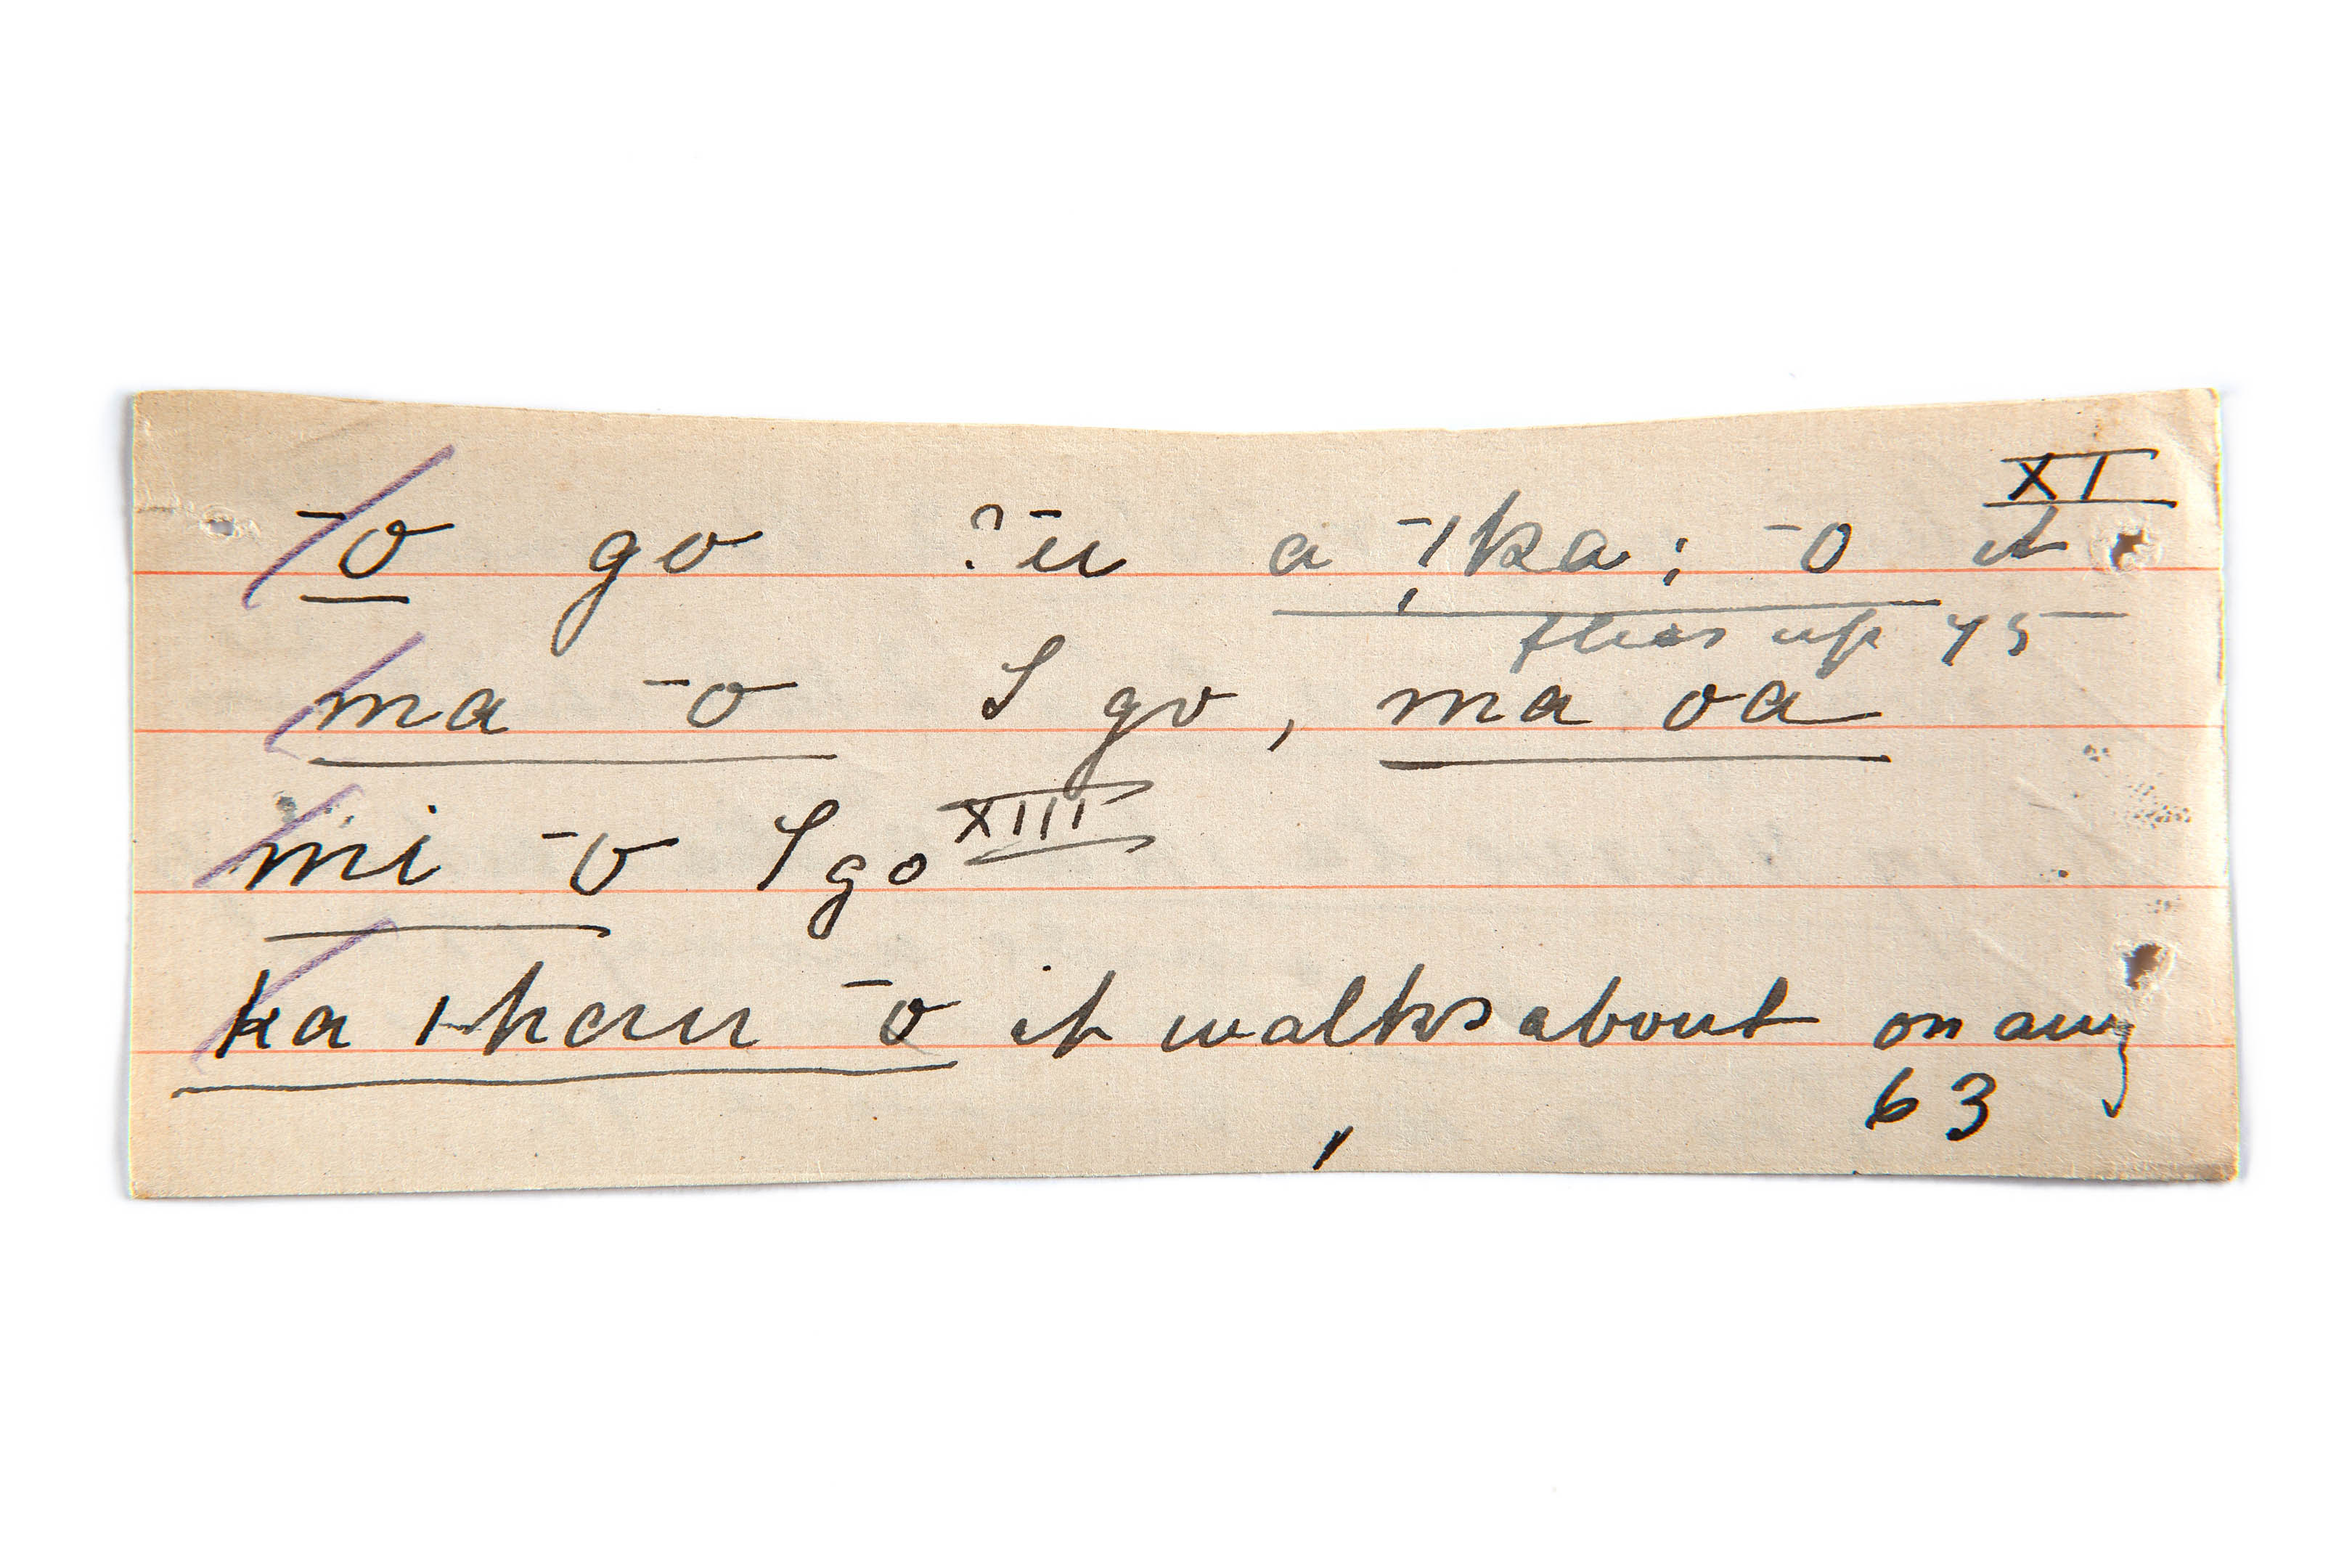 XI
‾o go ?‾u a ‾ǃka; ‾o it
flies up 45
ma ‾o I go, ma oa
mi ‾o I go XIII
ka ǀhau ‾o it walks about on any
63